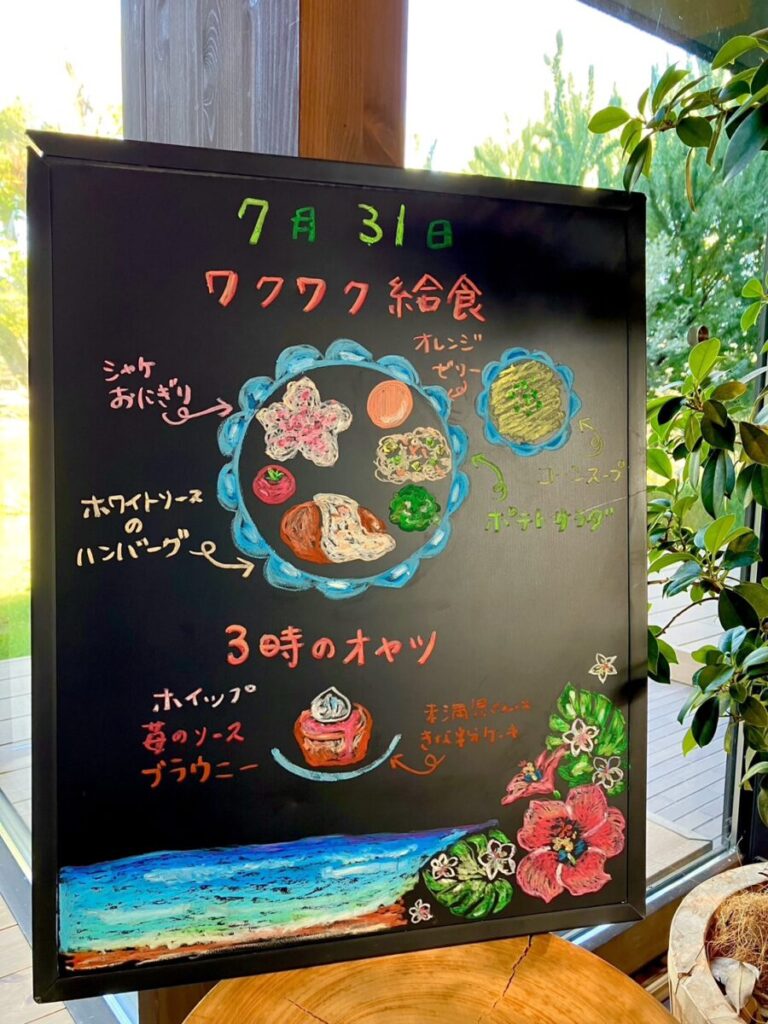 7月31日
ワクワク給食
オレンジ
ゼリー
シャケ
おにぎり
コーンスープ
ポテトサラダ
ホワイトソース
の
ハンバーグ
3時のオヤツ
ホイップ
苺のソース
ブラウニー
未満児さんは
きな粉ケーキ